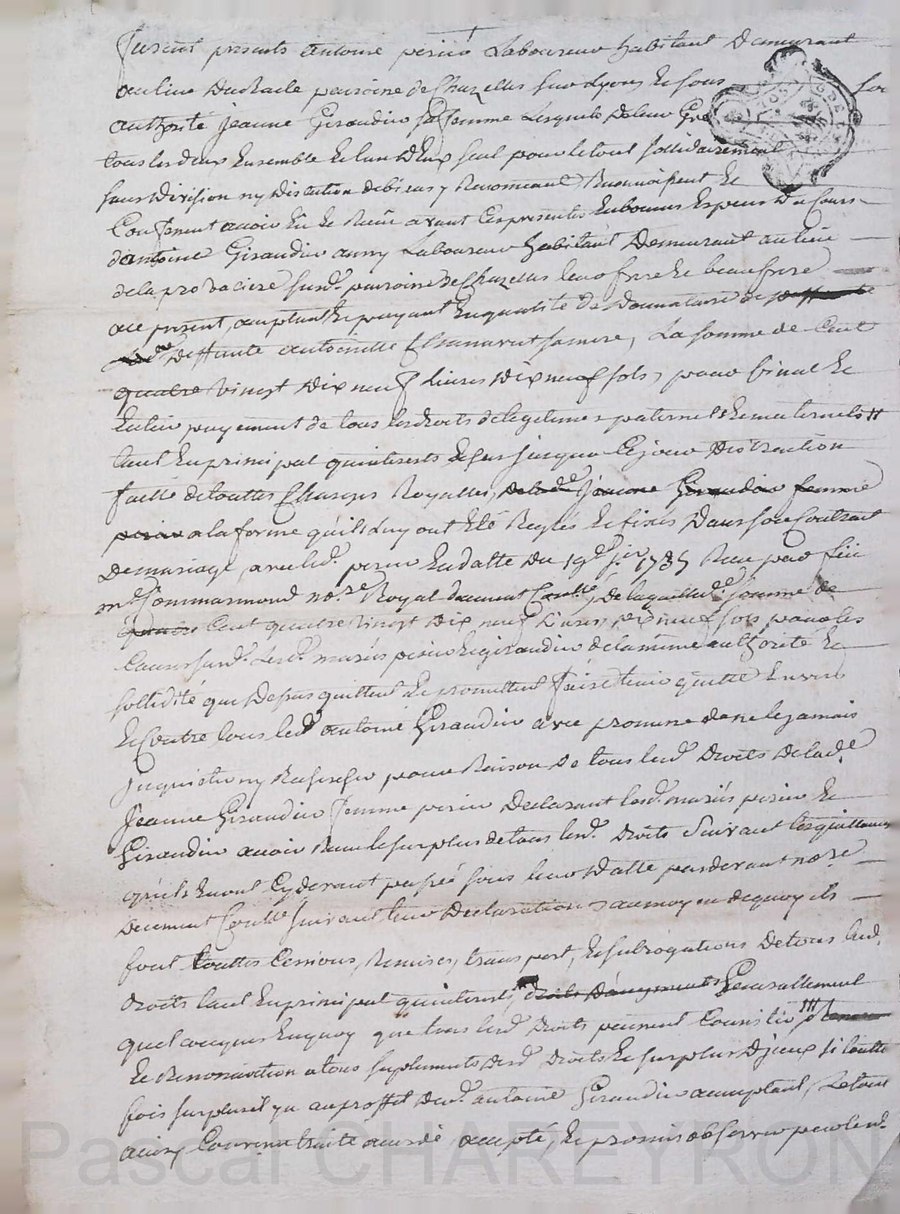 furent presents antoine perier Laboureur habitant demeurant
au lieu Duchasle paroisse de Chazelles sur Lyon, Et sous son
authorité Jeanne Giraudier sa femme Lesquels de leur Gré
tous les deux Ensemble Et lun D'Eux seul pour le tout sollidairement
sans Division ny Discution de biens y Renonceant, Reconnoissent Et
Confessent avoir Eu Et Receu avant Ces presentes En bonnes Especes Du Cours
d'antoine Giraudier aussy Laboureur habitant Demeurant au lieu
de la provaciere susd. paroisse de Chazelles leur frere Et beaufrere
ace present, acceptant Et payant En qualité de Donnataire de
Deffunte antoinette sa mere, La somme de Cent
quatre vingt Dix neuf Livres Dix neuf sols, pour final Et
Entier payement de tous les droits de legitimes paternels Et maternels
tant En principal qu'interests jusques a Ce jour Distraction
faitte de touttes Charges Royalles, de lade Jeanne Giraudier femme
perier a la forme qu'ils luy ont Eté Reglés Et fixés Dans son Contract
De mariage, avec led. perier En datte Du 19e Receu par feu
me Commarmond nore Royal duement Conllé, De laquelle de somme de
Cent quatre vingt Dix neuf Livres, dix neuf sols pour les
Causes susd. Lesd. mariés perier Et girauDier de la meme authorité Et
sollidité que Dessus quittent Et promettent faire tenir quitte Envers
Et Contre tous led. antoine Giraudier avec promesse de ne le jamais
Inquieter ny Rechercher pour Raison De tous lesd. Droits De lad.e
Jeanne Giraudier femme perier Declarant lesd. mariés perier Et
Giraudier avoir Receu le surplus de tous lesd. Droits Suivant les quittances
qu'ils En ont Cy devant passé sous leur Datte par devant nore
Deuement Conllée suivant leur Declaration, aumoyen dequoy ils
font touttes Cessions, Remises, transport, Et subrogations De tous lesd.
Droits tant En principal qu'interests, droits D'augments Generallement
quelconques En quoy que tous lesd. Droits peuvent Consister
Et Renonciation a tous suplements desd. Droits Et surplus D'jceux si toutte
fois surplus il y a au proffit dud. antoine Giraudier acceptant, Le tout
ainsy Convenu traité accordé accepté, Et promis observer par les
Pascal CHAREYRON